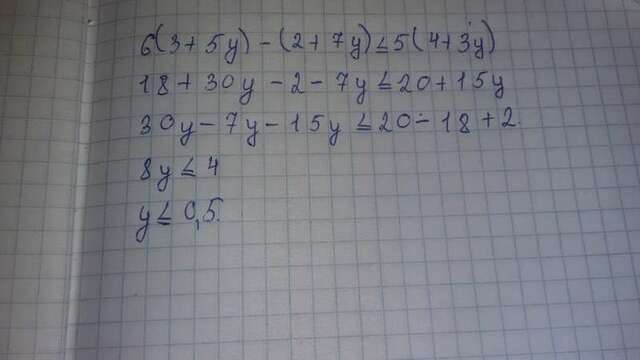 6(3+5y)-(2+7y)≤5(4+3y)
18+30y-2-7y≤20+15y
30y-7y-15y≤20-18+2.
8y≤4
y≤0,5.